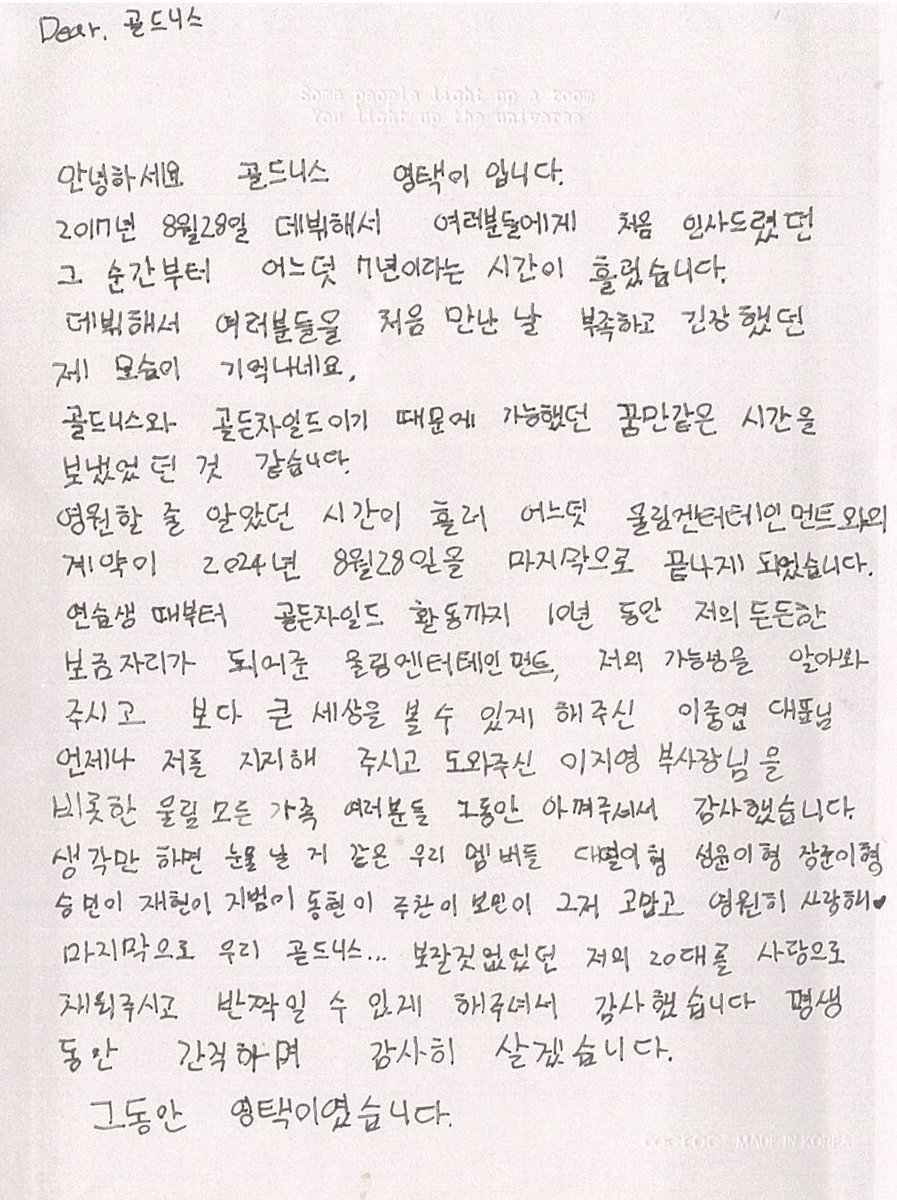 Dear. 골드니스
Some people light up a room
You light up the universe
안녕하세요 골드니스 영택이 입니다.
2017년 8월28일 데뷔해서 여러분들에게 처음 인사드렸던
그 순간부터 어느덧 7년이라는 시간이 흘렀습니다.
데뷔해서 여러분들을 처음 만난 날 부족하고 긴장했던
제 모습이 기억나네요.
골드니스와 골든차일드이기 때문에 가능했던 꿈만같은 시간을
보냈었던 것 같습니다.
영원할 줄 알았던 시간이 흘러 어느덧 울림엔터테인먼트와의
계약이 2024년 8월28일을 마지막으로 끝나게 되었습니다.
연습생 때부터 골든차일드 활동까지 10년 동안 저의 든든한
보금자리가 되어준 울림엔터테인먼트, 저의 가능성을 알아봐
주시고 보다 큰 세상을 볼 수 있게 해주신 이중엽 대표님
언제나 저를 지지해 주시고 도와주신 이지영 부사장님을
비롯한 울림 모든 가족 여러분들 그동안 아껴주셔서 감사했습니다.
생각만 하면 눈물 날 거 같은 우리 멤버들 대열이형 성윤이형 장준이형
승민이 재현이 지범이 동현이 주찬이 보민이 그저 고맙고 영원히 사랑해♥
마지막으로 우리 골드니스... 보잘것없었던 저의 20대를 사랑으로
채워주시고 반짝일 수 있게 해주셔서 감사했습니다 평생
동안 간직하며 감사히 살겠습니다.
그동안 영택이였습니다.
MADE IN KOREA